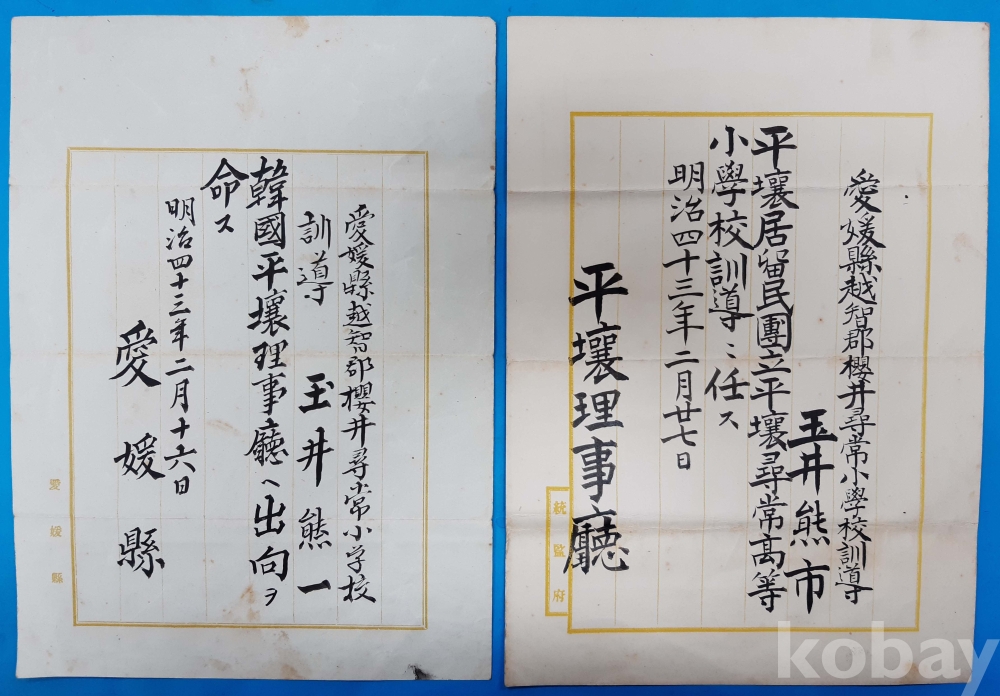 愛媛縣越智郡櫻井尋常小学校
訓導 玉井熊一
韓國平壤理事廳ヘ出向ヲ
命ス
明治四十三年二月十六日
愛媛縣
愛媛縣
愛媛縣越智郡櫻井尋常小學校訓導
玉井熊市
平壤居留民團立平壤尋常高等
小學校訓導ニ任ス
明治四十三年二月廿七日
平壤理事廳
統監府
kobay